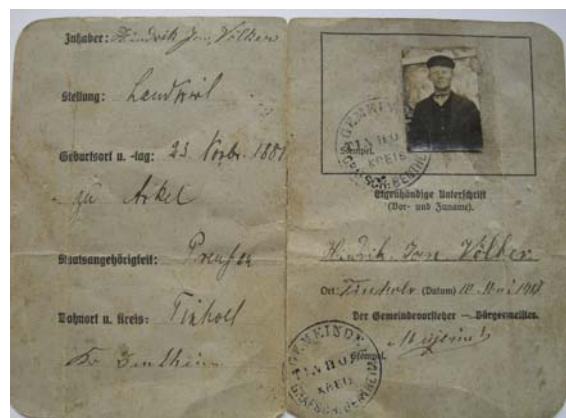 Inhaber: Hindrik Jan Völker
Stellung: Landwirt
Geburtsort u. -tag: 23. Novbr. 1881
zu Arkel
Staatsangehörigkeit: Preußen
Wohnort u. Kreis: Tinholt
Kr. Bentheim
GEMEINDE
TINHOLT
KREIS
GRAFSCH. BENTHEIM
Stempel.
Eigenhändige Unterschrift
(Vor- und Zuname).
Hindrik Jan Völker
Ort: Tinholt (Datum) 10. Mai 19
Der Gemeindevorsteher – Bürgermeister.
Stempel.
GEMEINDE
TINHOLT
KREIS
GRAFSCH. BENTHEIM